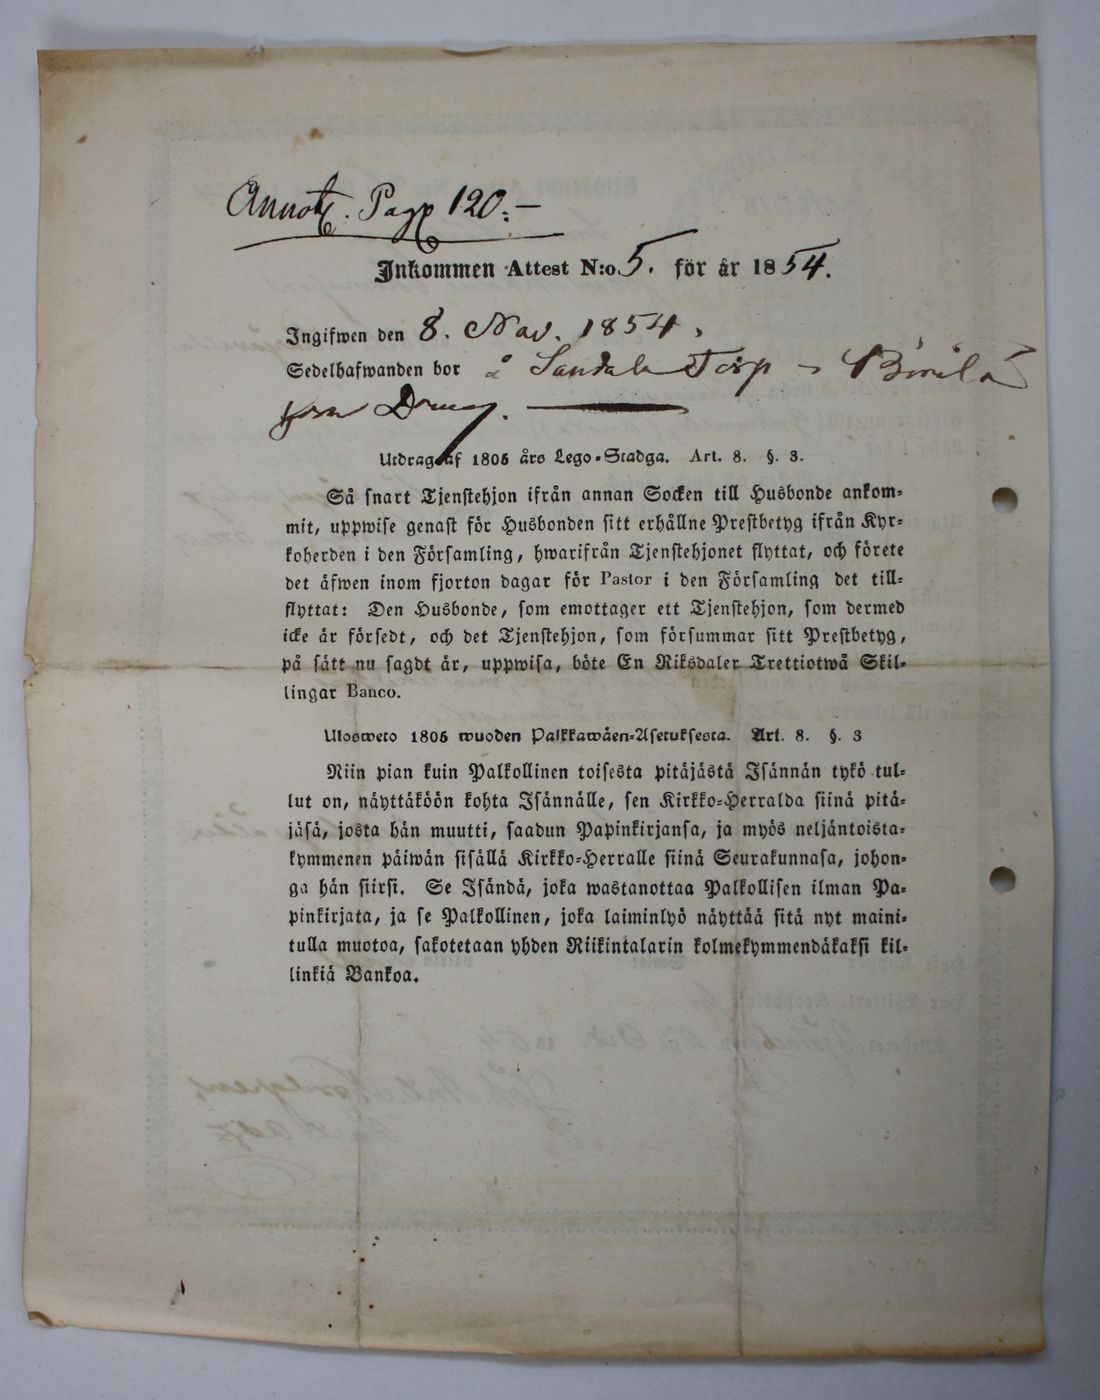 Annot. Pag 120:—
Inkommen Attest N:o 5. för år 1854.
Ingifwen den 8. Nov. 1854,
Sedelhafwanden bor å Sandala Torp
Utdrag af 1805 års Lego-Stadga. Art. 8. §. 3.
Så snart Tjenstehjon ifrån annan Socken till Husbonde ankom-
mit, uppwise genast för Husbonden sitt erhållne Prestbetyg ifrån Kyr-
koherden i den Församling, hwarifrån Tjenstehjonet flyttat, och förete
det äfwen inom fjorton dagar för Pastor i den Församling det till-
flyttat: Den Husbonde, som emottager ett Tjenstehjon, som dermed
icke är försedt, och det Tjenstehjon, som försummar sitt Prestbetyg,
på sätt nu sagdt är, uppwisa, böte En Riksdaler Trettiotwå Skil-
lingar Banco.
Ulosweto 1805 wuoden Palkkawäen-Asetuksesta. Art. 8. §. 3
Niin pian kuin Palkollinen toisesta pitäjästä Isännän tykö tul-
lut on, näyttäköön kohta Isännälle, sen Kirkko-Herralda siinä pitä-
jäsä, josta hän muutti, saadun Papinkirjansa, ja myös neljäntoista-
kymmenen päiwän sisällä Kirkko-Herralle siinä Seurakunnasa, johon-
ga hän siirsi. Se Isändä, joka wastanottaa Palkollisen ilman Pa-
pinkirjata, ja se Palkollinen, joka laiminlyö näyttää sitä nyt maini-
tulla muotoa, sakotetaan yhden Riikintalarin kolmekymmendäkaksi kil-
linkiä Bankoa.